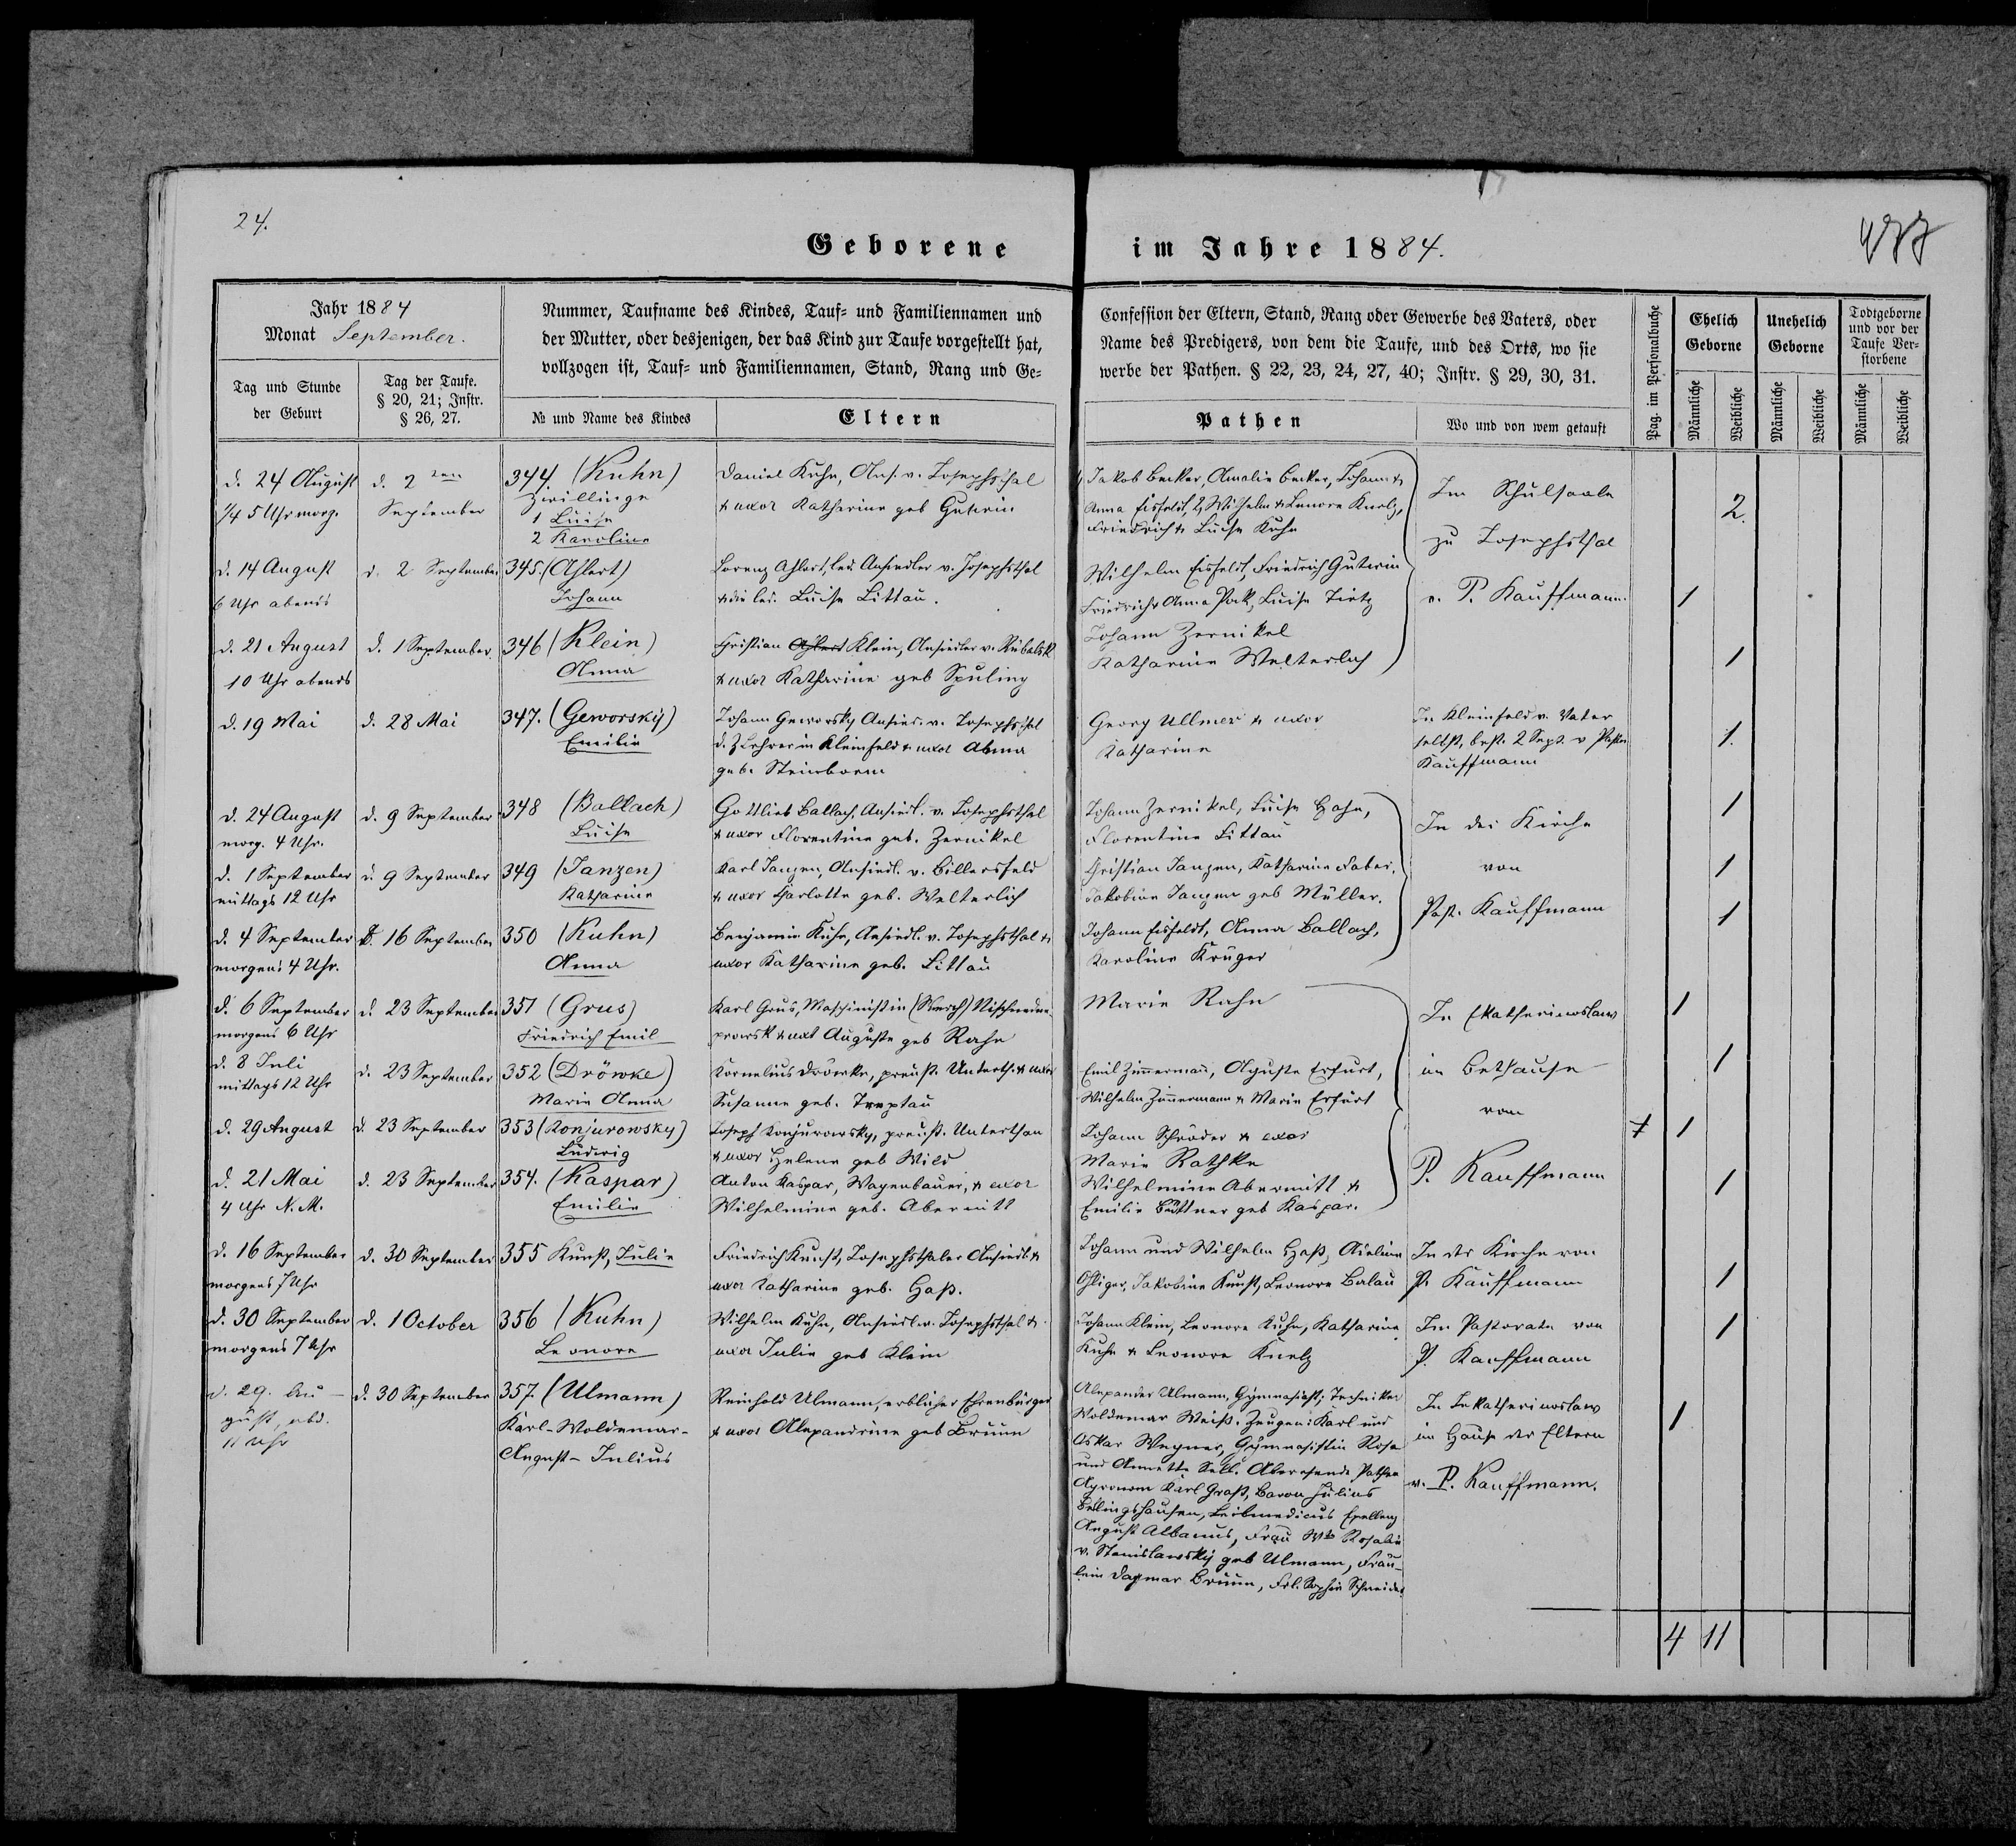 24.
Geborene im Jahre 1884.
Jahr 1884
Monat September.
Tag und Stunde der Geburt
Tag der Taufe. § 20, 21; Instr. § 26, 27.
Nummer, Taufname des Kindes, Tauf- und Familiennamen und
der Mutter, oder desjenigen, der das Kind zur Taufe vorgestellt hat,
vollzogen ist, Tauf- und Familiennamen, Stand, Rang und Ge-
№ und Name des Kindes
Eltern
Confession der Eltern, Stand, Rang oder Gewerbe des Vaters, oder
Name des Predigers, von dem die Taufe, und des Orts, wo sie
werbe der Pathen. § 22, 23, 24, 27, 40; Instr. § 29, 30, 31.
Pathen
Wo und von wem getauft
Pag. im Personalbuche
Ehelich Geborne
Unehelich Geborne
Todtgeborne und vor der Taufe Verstorbene
Männliche
Weibliche
Männliche
Weibliche
Männliche
Weibliche
d. 24 August
1/4 5 Uhr morg.
d. 2ten
September
344. (Kuhn)
Zwillinge
1 Luise
2 Karoline
Daniel Kuhn, Ans. v. Josephsthal
& uxor Katherine geb Gutwin
Jakob Becker, Amalie Becker, Johann &
Anna Eisfeldt, 2, Wilhelm & Lenore Knelz,
Friedrich & Luise Kuhn
Im Schulsaale
zu Josephsthal
v. P. Kauffmann.
2.
d. 14 August
6 Uhr abends
d. 2 September
345. (Ahlert)
Johann
Lorenz Ahlert, led. Ansiedler v. Josephsthal
& die led. Luise Littau.
Wilhelm Eisfeldt, Friedrich Gutwin
Friedrich & Anna Pock, Luise Tietz
1
d. 21 August
10 Uhr abends
d. 1 September.
346 (Klein)
Anna
Christian Ahlert Klein, Ansiedler v. Rübalsk
& uxor Katharine geb Spuling
Johann Zernikel
Katharine Welterlich
1
d. 19 Mai
d. 28 Mai
347. (Geworsky)
Emilie
Johann Geworsky Ansied. v. Josephsthal
d. Z Lehrer in Kleinfeld & uxor Abina
geb. Steinborn
Georg Ullmer & uxor
Katharine
In Kleinfeld v. Vater
selbst, best. 2 Sept. v Pastor
Kauffmann
1.
d. 24 August
morg. 4 Uhr.
d. 9 September
348 (Ballach)
Luise
Gottlieb Ballach, Ansiedl. v. Josephsthal
& uxor Florentine geb. Zernikel
Johann Zernikel, Luise Hahn,
Florentine Littau
In der Kirche
von
Past. Kauffmann
1
d. 1 September
mittags 12 Uhr
d. 9 September
349 (Janzen)
Katharine
Karl Janzen, Ansiedl. v. Billersfeld
& uxor Charlotte geb. Welterlich
Christian Janzen, Katharine Faber,
Jakobine Janzen geb Müller.
1
d. 4 September
morgens 4 Uhr.
d. 16 September
350 (Kuhn)
Anna
Benjamin Kuhn, Ansiedl. v. Josephsthal &
uxor Katharine geb. Littau
Johann Eisfeldt, Anna Ballach,
Karoline Krüger
1
d. 6 September
morgens 6 Uhr
d. 23 September
351 (Grus)
Friedrich Emil
Karl Grus, Maschinist in (Werch) Nischnedne-
prowsk & uxor Auguste geb Rahn
Marie Rahn
In Ekatherinoslaw
im Bethause
von
P. Kauffmann
1
d. 8 Juli
mittags 12 Uhr
d. 23 September
352 (Dröwke)
Marie Anna
Kornelius Dröwke, preuß. Unterth. & uxor
Susanne geb. Treptau
Emil Zimmermann, Auguste Erfurt,
Wilhelm Zimmermann & Marie Erfurt
1
d. 29 August
d. 23 September
353 (Konjurowsky)
Ludwig
Joseph Konjurowsky, preuß. Unterthan
& uxor Helene geb Wild
Johann Schröder & uxor
Marie Rathke
1
d. 21 Mai
4 Uhr N. M.
d. 23 September
354. (Kaspar)
Emilie
Anton Kaspar, Wagenbauer, & uxor
Wilhelmine geb. Abermitt
Wilhelmine Abermitt &
Emilie Büttner geb Kaspar.
1
d. 16 September
morgens 7 Uhr
d. 30 September
355 Kunst, Julie
Friedrich Kunst, Josephsthaler Ansiedl. &
uxor Katharine geb. Haß.
Johann und Wilhelm Haß,
Jakobine Kunst, Leonore Balau
In der Kirche von
P. Kauffmann
1
d. 30 September
morgens 7 Uhr
d. 1 October
356 (Kuhn)
Leonore
Wilhelm Kuhn, Ansiedl. v. Josephsthal &
uxor Julie geb Klein
Johann Klein, Leonore Kuhn, Katharine
Kuhn & Leonore Knelz
Im Pastorate von
P. Kauffmann
1
d. 29. Au-
gust, abd.
11 Uhr
d. 30 September
357. (Ulmann)
Karl-Woldemar-
August-Julius
Reinhold Ulmann, erblicher Ehrenbürger
& uxor Alexandrine geb Bruun
Alexander Ulmann, Gymnasiast, Techniker
Woldemar Weiß. Zeugen: Karl und
Oskar Wegner, Gymnasistin Rosa
und Annette Sell. Abwesende Pathen
Agronom Karl Graß, Baron Julius
Bellingshausen, Leibmedicus Exellenz
August Albanus, Frau Rosalie
v. Stanislawsky geb Ulmann, Fräu-
lein Dagmar Bruun, Frl. Sophie Schneider
In Jekatherinoslaw
im Hause der Eltern
v. P. Kauffmann.
1
4 11